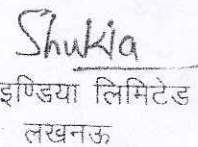 Shukla
इण्डिया लिमिटेड
लखनऊ